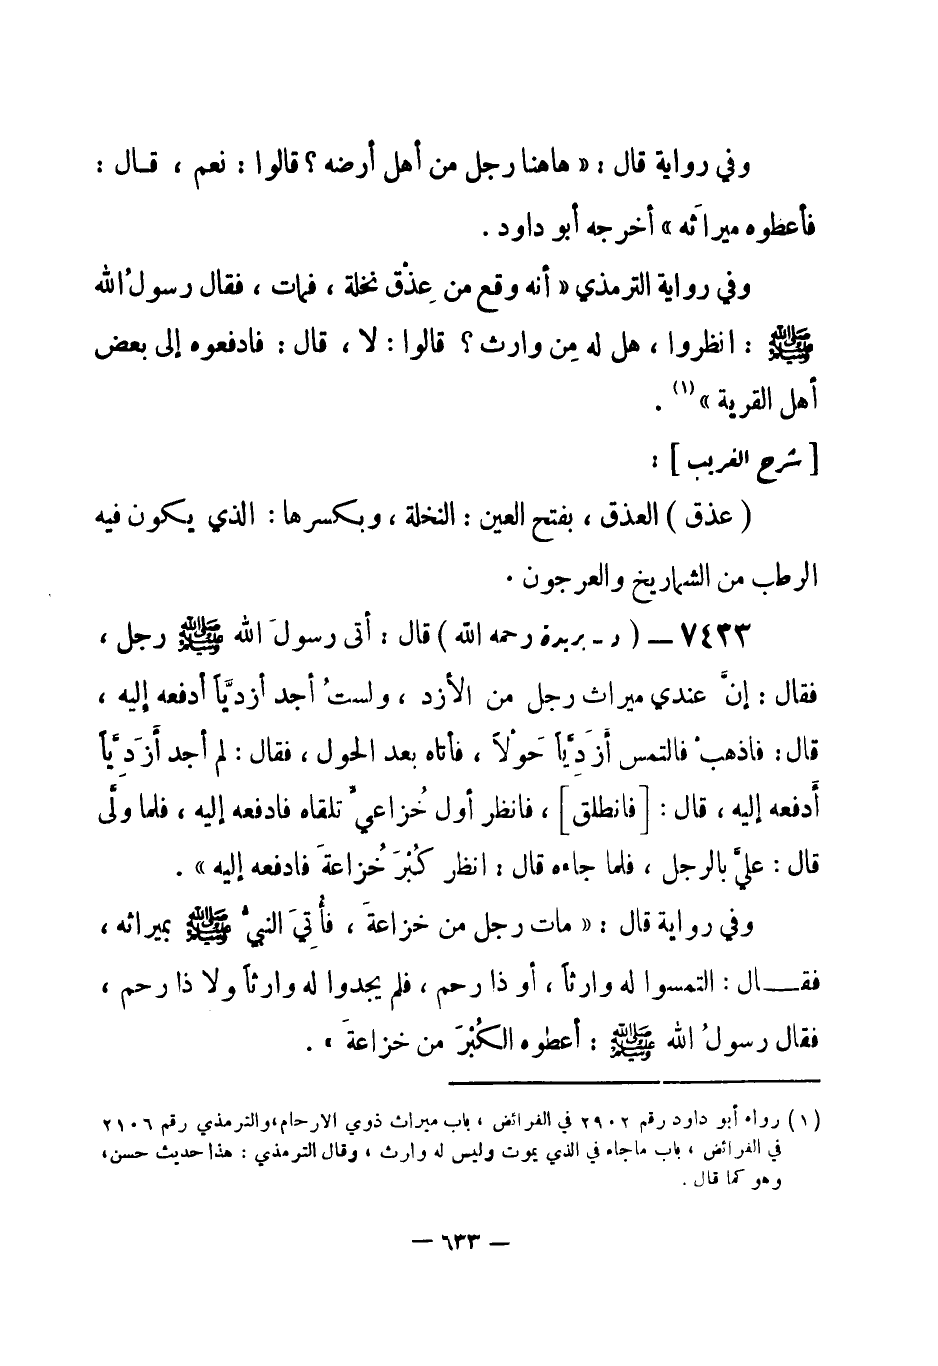 وفي رواية قال : « هاهنا رجل من أهل أرضه ؟ قالوا : نعم ، قـال :
فأعطوه ميراثَه » أخرجه أبو داود .
وفي رواية الترمذي « أنه وقع من عِذْق نخلة ، فمات ، فقال رسولُ الله
ﷺ : انظروا ، هل له مِن وارث ؟ قالوا : لا ، قال : فادفعوه إلى بعض
أهل القرية » (١) .
[ شرح الغريب ] :
( عذق ) العذق ، بفتح العين : النخلة ، وبكسرها : الذي يكون فيه
الرطب من الشماريخ والعرجون .
٧٤٣٣ – ( د - بريدة رحمه الله ) قال : أتى رسولَ الله ﷺ رجل ،
فقال : إنَّ عندي ميراث رجل من الأزد ، ولستُ أجد أزديَّاً أدفعه إليه ،
قال : فاذهبْ فالتمس أَزْدِيَّاً حَوْلاً ، فأتاه بعد الحول ، فقال : لم أجد أَزْدِيَّاً
أَدفعه إليه ، قال : [ فانطلق ] ، فانظر أول خُزاعيٍّ تلقاه فادفعه إليه ، فلما ولَّى
قال : عليَّ بالرجل ، فلما جاءه قال : انظر كُبْرَ خُزاعةَ فادفعه إليه » .
وفي رواية قال : « مات رجل من خزاعةَ ، فأُتِيَ النبيُّ ﷺ بميراثه ،
فقـــال : التمسوا له وارثاً ، أو ذا رحم ، فلم يجدوا له وارثاً ولا ذا رحم ،
فقال رسولُ الله ﷺ : أعطوه الكُبْرَ من خزاعةَ » .
(١) رواه أبو داود رقم ٢٩٠٢ في الفرائض ، باب ميراث ذوي الارحام ، والترمذي رقم ٢١٠٦
في الفرائض ، باب ماجاء في الذي يموت وليس له وارث ، وقال الترمذي : هذا حديث حسن ،
وهو كما قال .
– ٦٣٣ –